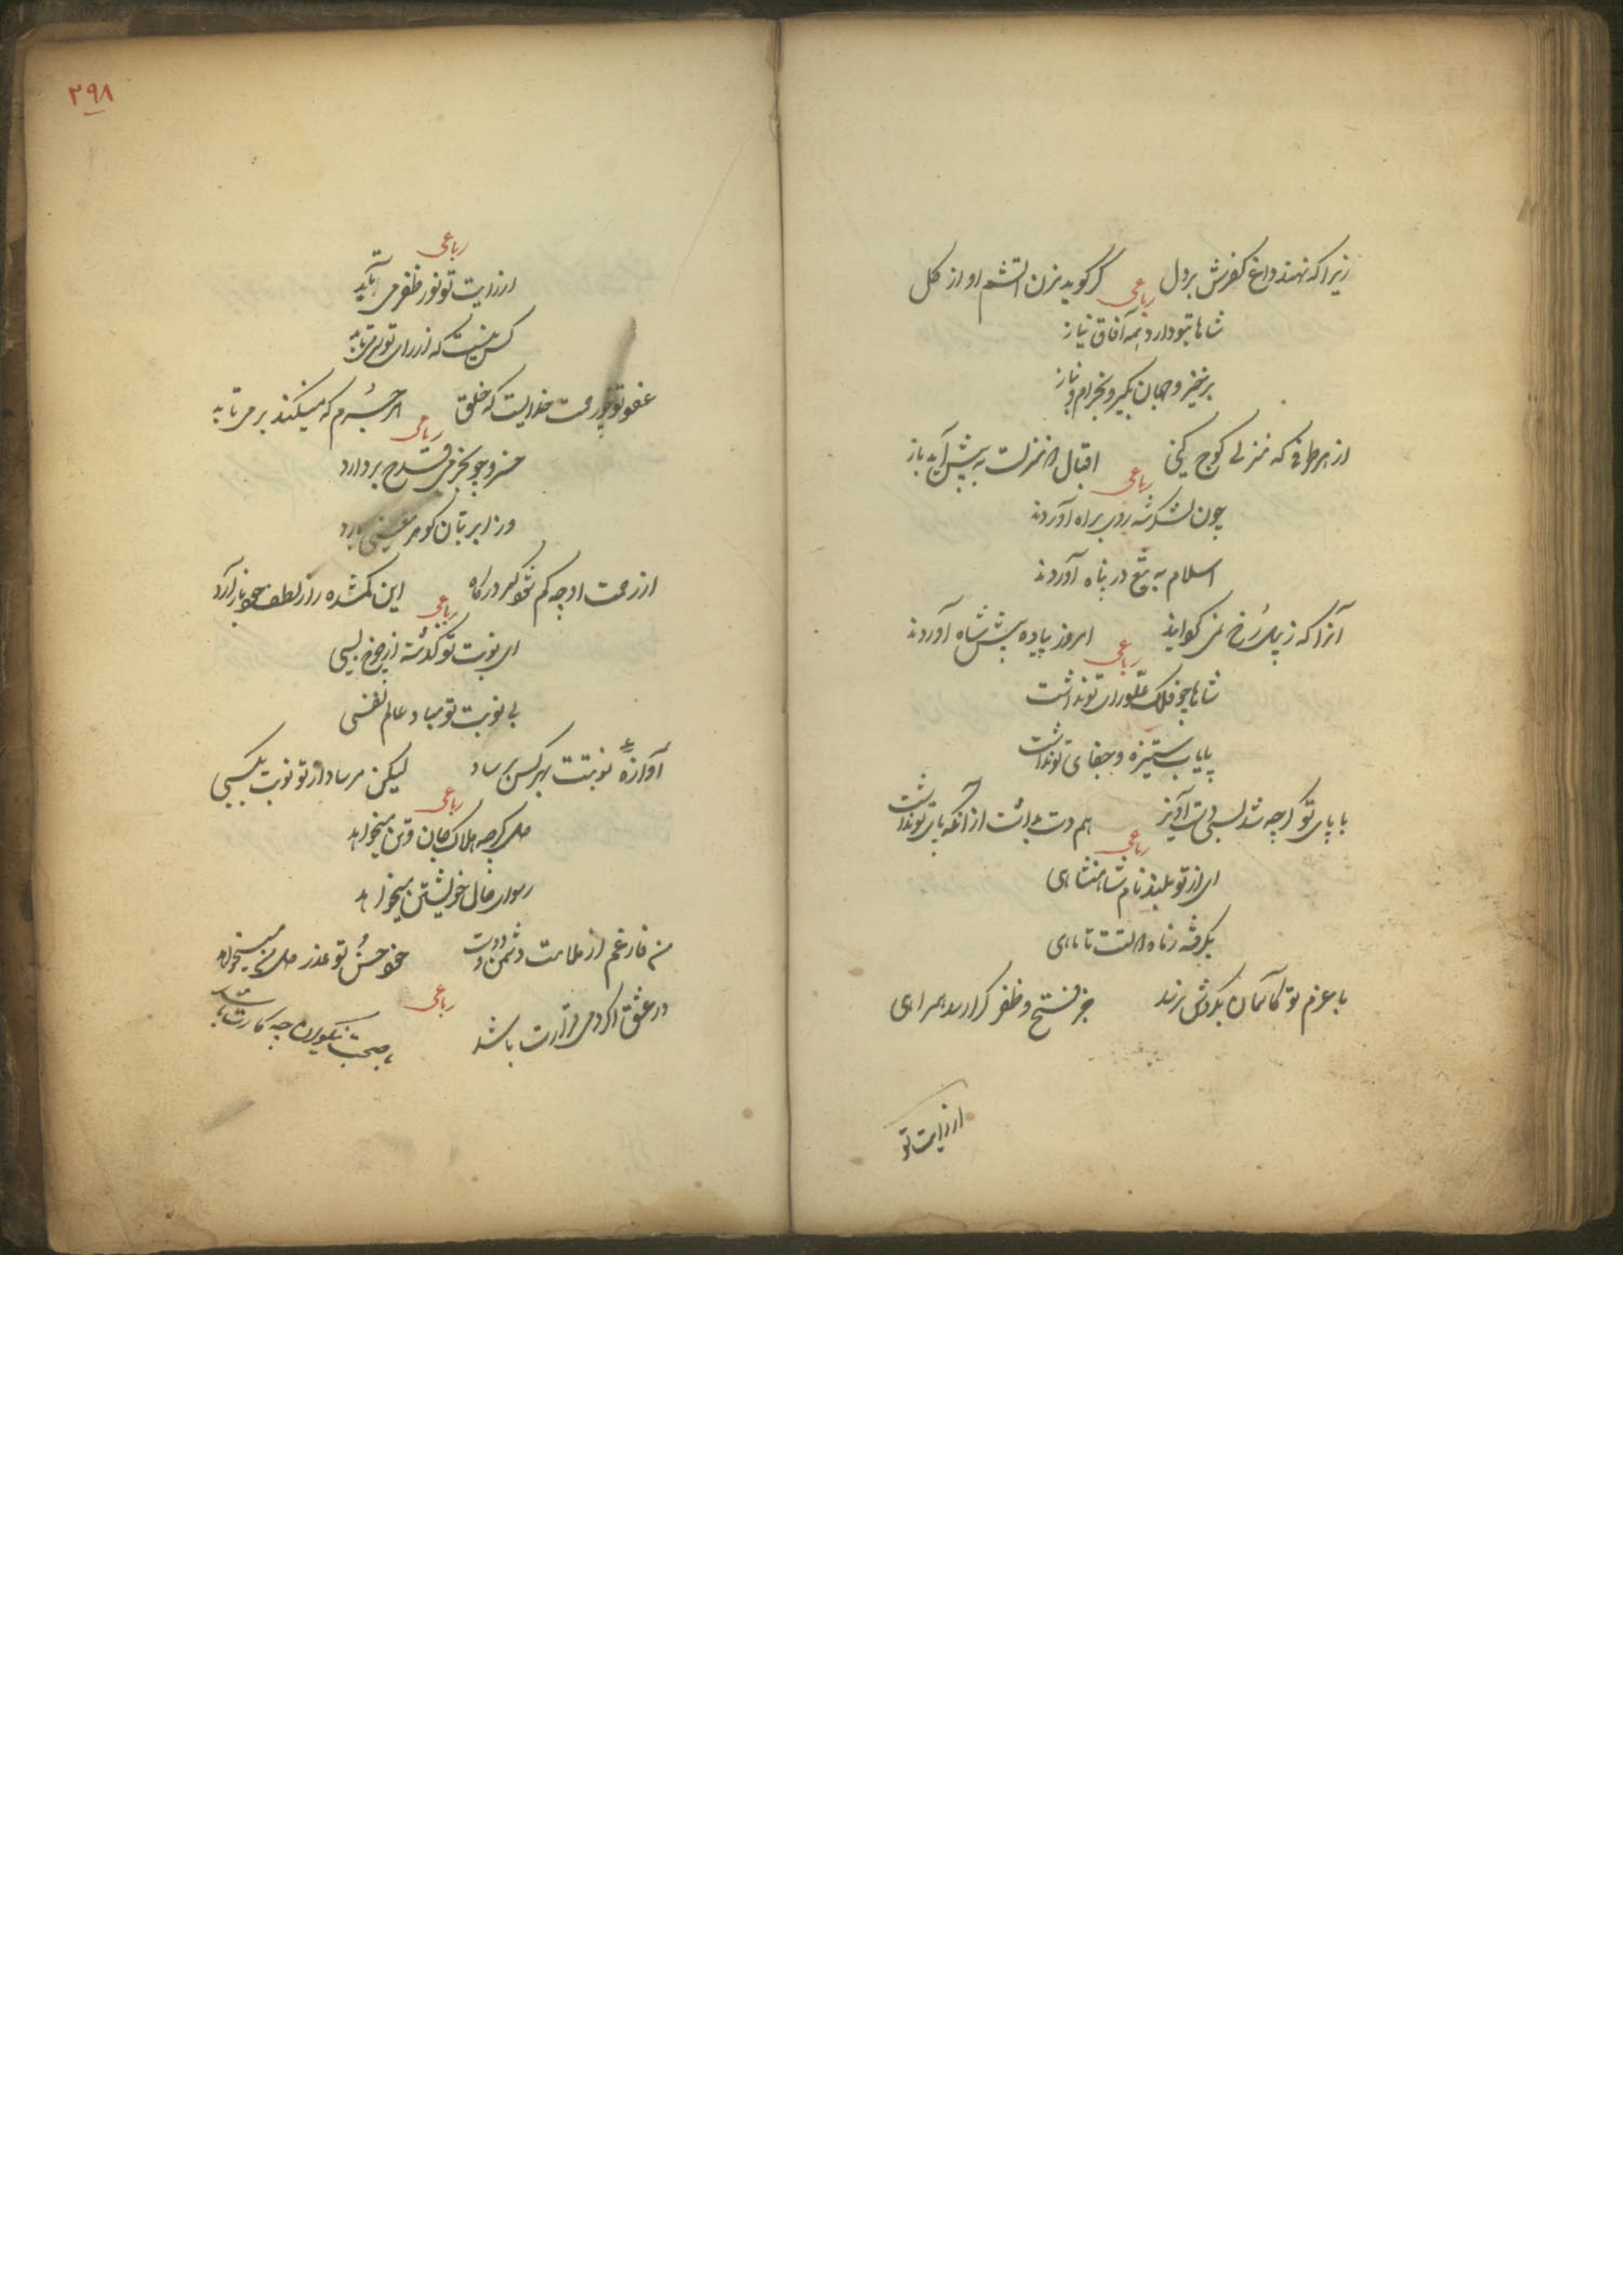 زیرا که نهند داغ کفرش بر دل گر گوید من التشم او از کل
رباعی
شاها بتو دارد همه آفاق نیاز
برخیز و جهان بگیر و بخرام و بناز
از هر طرفی که منزلی کوچ کنی اقبال منزلت به پیش آید باز
رباعی
چون لشکر شه روی براه آوردند
اسلام به تیغ در پناه آوردند
آنرا که ز پیل رخ امروز پیاده پیش شاه آوردند
رباعی
شاها چو فلک علو رای تو نداشت
پایاب ستیزه و جفای تو نداشت
با پای تو گرچه شد بسی دست آویز هم دست بداشت از آنکه پای تو نداشت
رباعی
ای از تو بلند نام شاهنشاهی
بگرفته ز ماه تا ماهی
با عزم تو کاسمان بگردش نرسد جز فتح و ظفر کرا رسد همراهی
از رایت تو
۲۹۸
رباعی
از رایت تو نور ظفر می‌تابد
کس نیست که از رای تو سر می‌تابد
عفو تو چو رحمت خداایست که خلق هر جرم که میکنند بر می‌تابد
رباعی
خسرو چو بخرمی قدح بردارد
وز ابر بنان گوهر بارد
از رحمت او چه کم شود گر در راه این گمشده را ز لطف خود باز آرد
رباعی
ای نوبت تو گذشته از چرخ بسی
بی نوبت تو مباد عالم نفسی
آوازهٔ نوبتت بهر کس برساد لیکن مرساد از تو نوبت بکسی
رباعی
دل گرچه هلاک جان و تن میخواهد
رسوائی حال خویشتن میخواهد
من فارغم از ملامت دشمن و دوست خود حسن تو عذر دل من میخواهد
رباعی
در عشق اگر دمی قرارت باشد با صحبت نیکوان چه کارت باشد